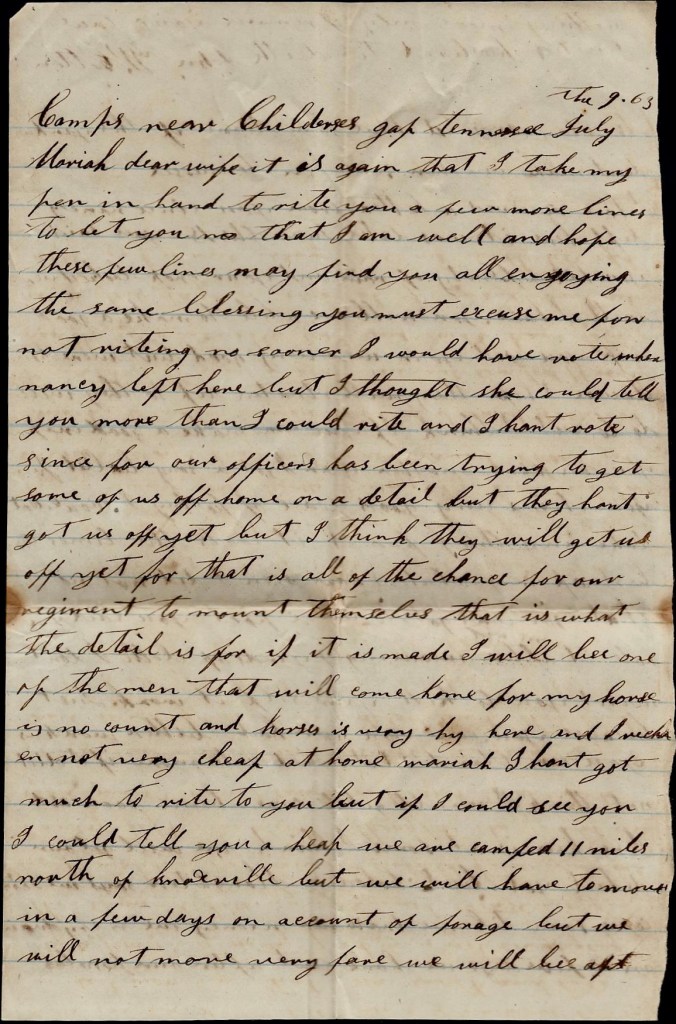 the 9. 63
Camps near Childerses gap tennessee July
Mariah dear wife it is again that I take my
pen in hand to rite you a few more lines
to let you no that I am well and hope
these few lines may find you all enyoying
the same blessing you must excuse me for
not riteing no sooner I would have rote when
nancy left here but I thought she could tell
you more than I could rite and I hant rote
since for our officers has been trying to get
some of us off home on a detail but they hant
got us off yet but I think they will get us
off yet for that is all of the chance for our
regiment to mount themselves that is what
the detail is for if it is made I will bee one
of the men that will come home for my horse
is no count and horses is very hy here and I reck
en not very cheap at home mariah I hant got
much to rite to you but if I could see you
I could tell you a heap we are camped 11 miles
north of knoxville but we will have to move
in a few days on account of forage but we
will not move very fare we will bee apt